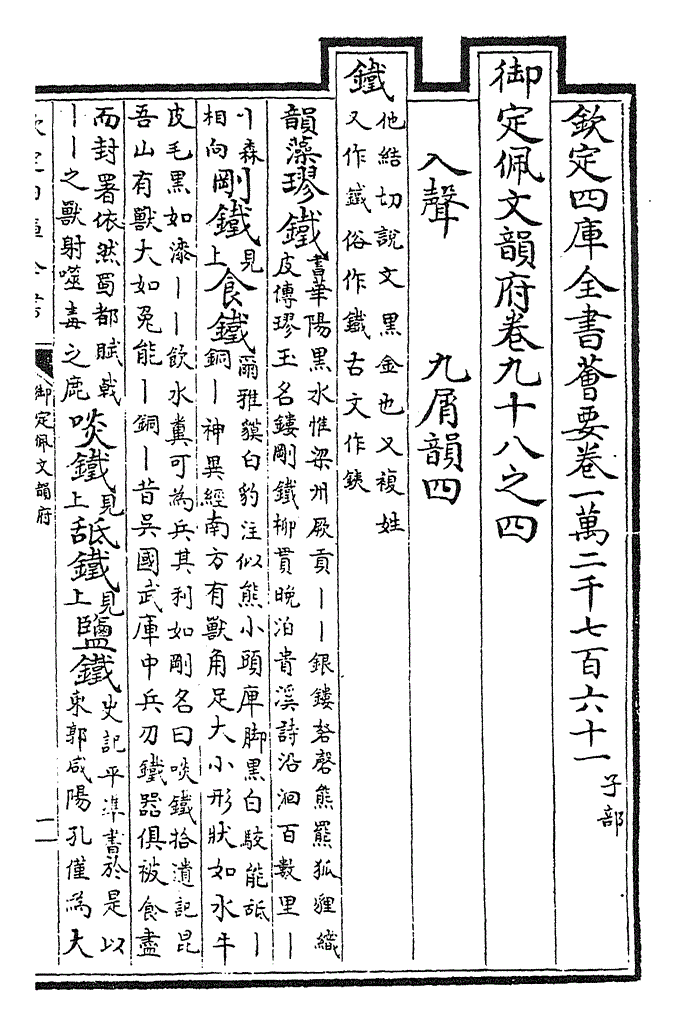 欽定四庫全書薈要卷一萬二千七百六十一 子部
御定佩文韻府卷九十八之四
入聲 九屑韻四
鐵 他結切說文黑金也又複姓
又作鐡俗作鐵古文作銕
韻藻璆鐵 書華陽黑水惟梁州厥貢丨丨銀鏤砮磬熊羆狐狸織
皮傳璆玉名鏤剛鐵柳貫晚泊貴溪詩沿洄百數里丨
丨森相向 剛鐵 見上 食鐵 爾雅貘白豹注似熊小頭庳脚黑白駮能舐丨
銅丨神異經南方有獸角足大小形狀如水牛
皮毛黑如漆丨丨飲水糞可為兵其利如剛名曰啖鐵拾遺記昆
吾山有獸大如兔能丨銅丨昔吳國武庫中兵刃鐵器俱被食盡
而封署依然蜀都賦戟
丨丨之獸射噬毒之鹿 啖鐵 見上 舐鐵 見上 鹽鐵 史記平準書於是以
東郭咸陽孔僅為大
御定佩文韻府
一